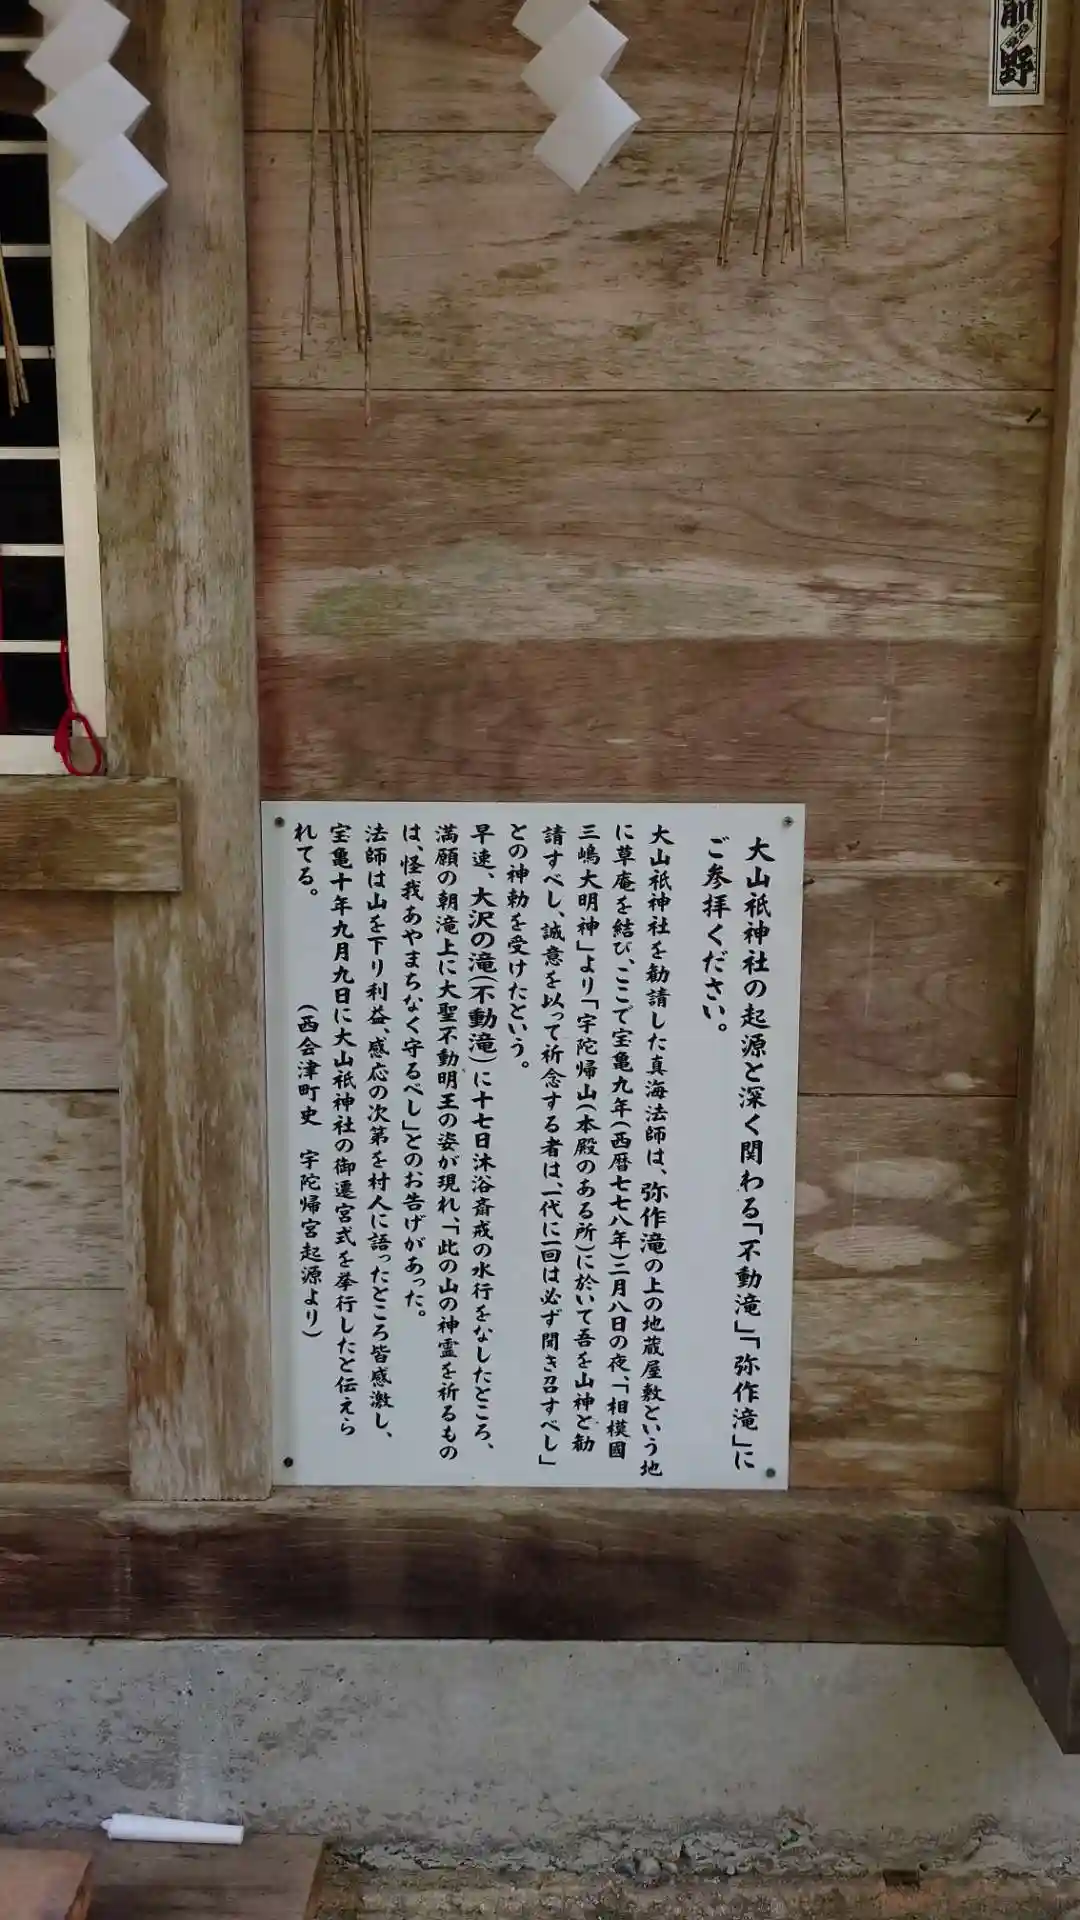 大山祇神社の起源と深く関わる「不動滝」「弥作滝」に
ご参拝ください。
大山祇神社を勧請した真海法師は、弥作滝の上の地蔵屋敷という地
に草庵を結び、ここで宝亀九年(西暦七七八年)三月八日の夜、「相模國
三嶋大明神」より「宇陀帰山(本殿のある所)に於いて吾を山神と勧
請すべし、誠意を以って祈念する者は、一代に一回は必ず聞き召すべし」
との神勅を受けたという。
早速、大沢の滝(不動滝)に十七日沐浴斎戒の水行をなしたところ、
満願の朝滝上に大聖不動明王の姿が現れ、「此の山の神霊を祈るもの
は、怪我あやまちなく守るべし」とのお告げがあった。
法師は山を下り利益、感応の次第を村人に語ったところ皆感激し、
宝亀十年九月九日に大山祇神社の御遷宮式を挙行したと伝えら
れてる。
(西会津町史 宇陀帰宮起源より)
野